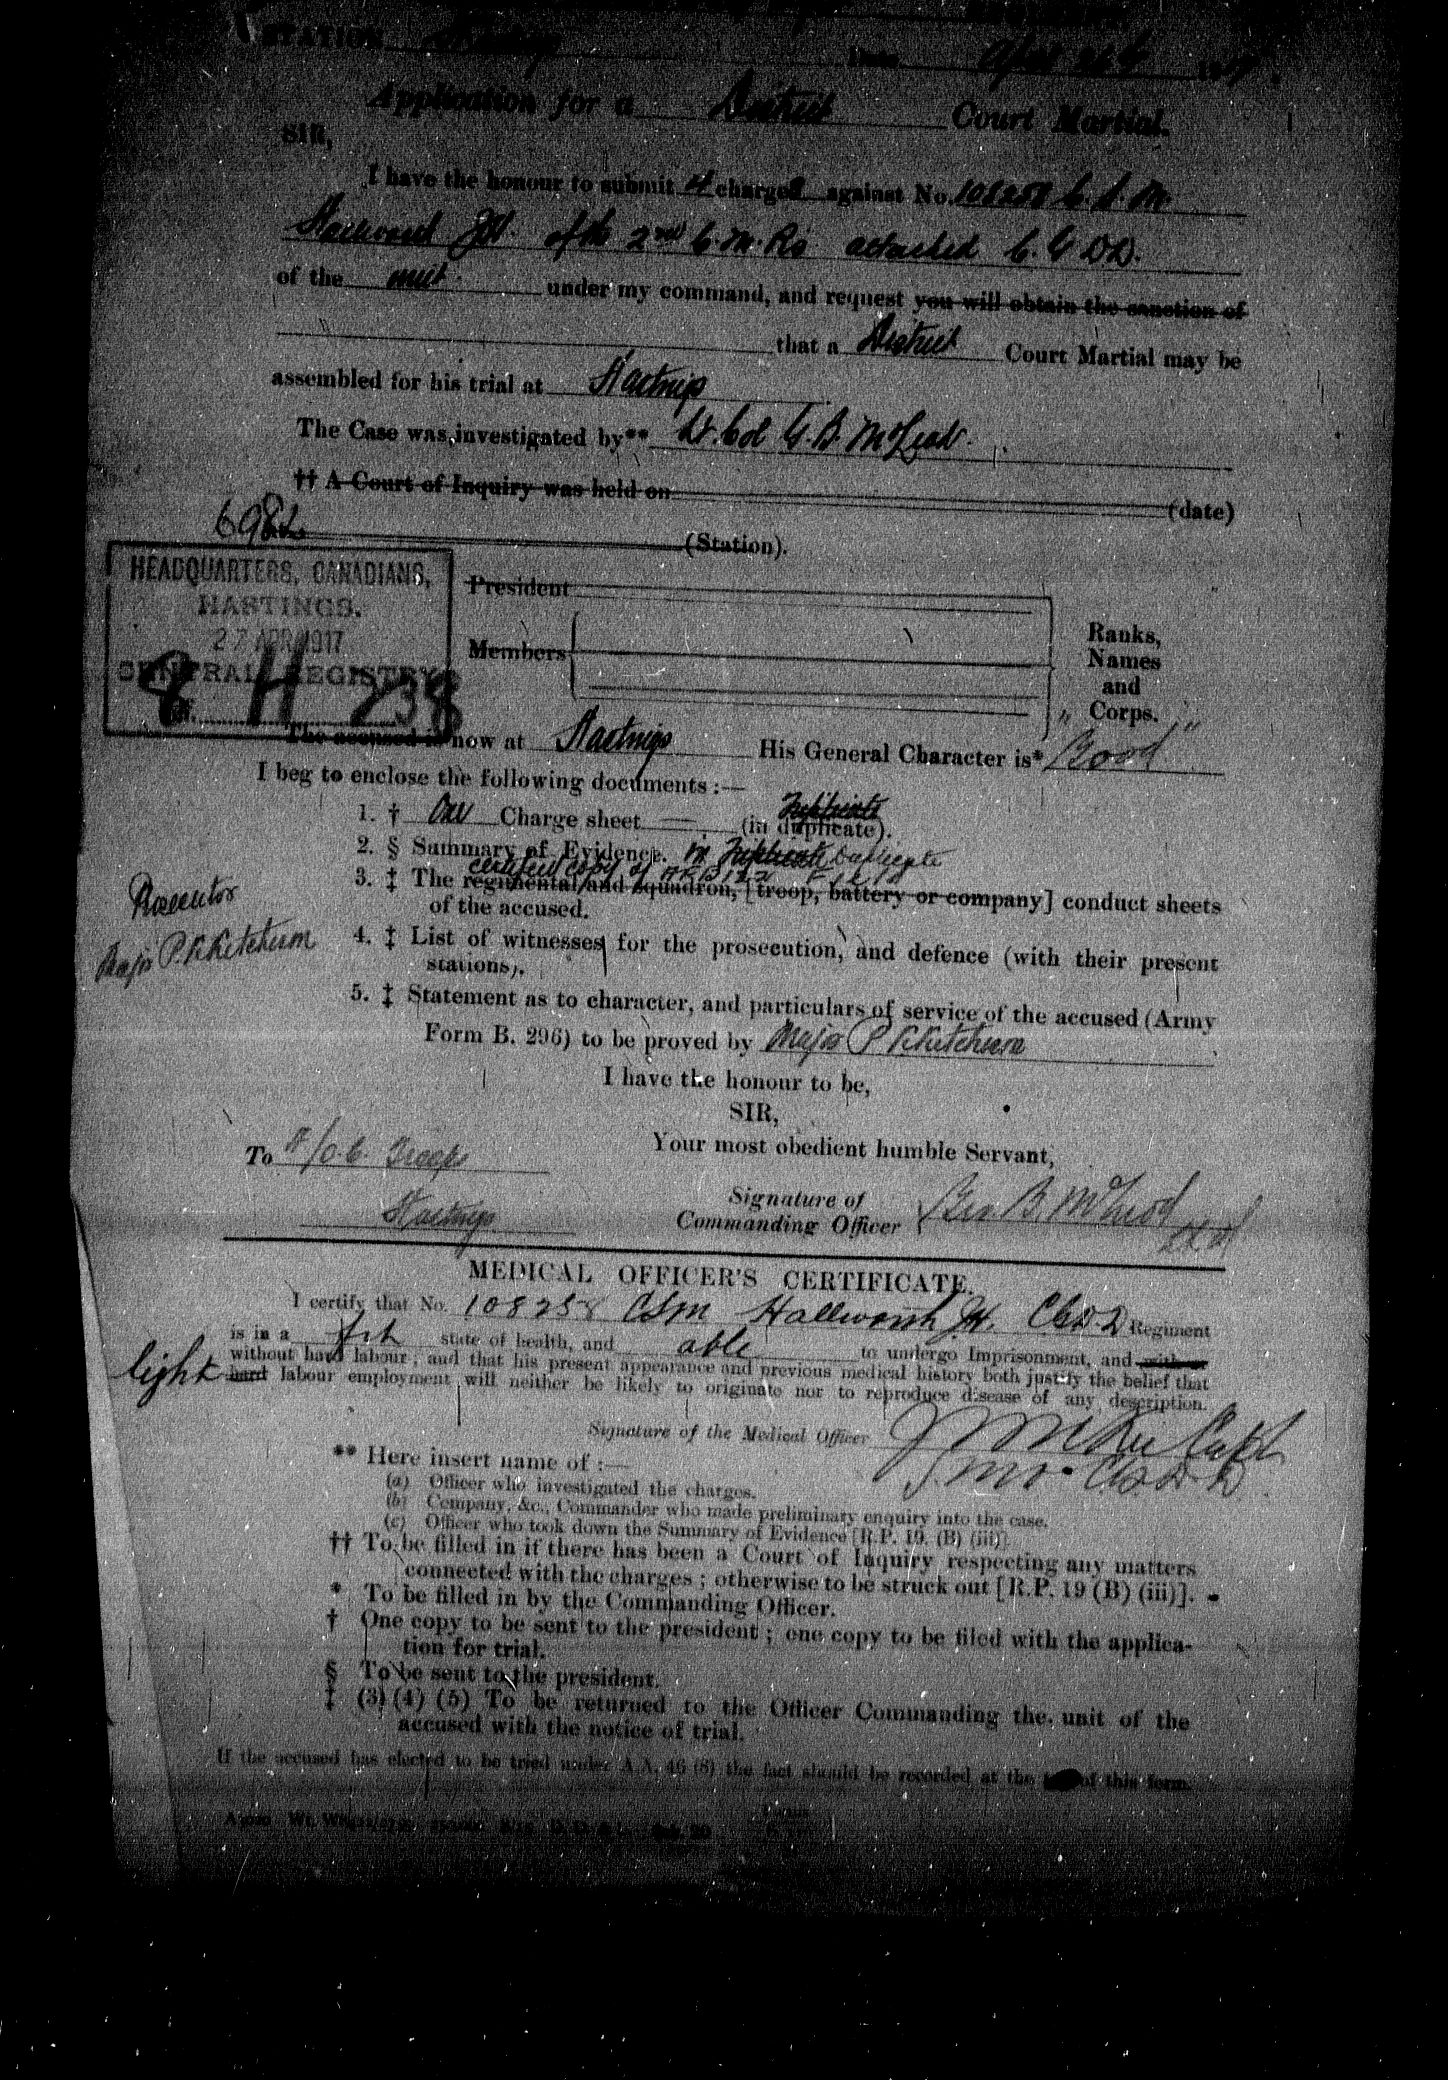 STATION Hastings Date April 26th 1917.
Application for a District Court Martial.
SIR,
I have the honour to submit 4 charges against No. 108258 C.S.M.
Hallworth J.H. of the 2nd C.M.Rs attached C.C.D.D.
of the unit. under my command, and request you will obtain the sanction of
that a District Court Martial may be
assembled for his trial at Hastings
The Case was investigated by** Lt. Col G.B. McLeod.
†† A Court of Inquiry was held on (date)
(Station).
HEADQUARTERS, CANADIANS,
HASTINGS.
27 APR 1917
CENTRAL REGISTRY
8 H 238
President
Members
Ranks,
Names
and
Corps.
The accused is now at Hastings His General Character is* "Good"
I beg to enclose the following documents :—
1. † One Charge sheet (in duplicate). Triplicate
2. § Summary of Evidence. in Triplicate Duplicate
certified copy of A.F.B 122
3. ‡ The regimental/and squadron, [troop, battery or company] conduct sheets
of the accused.
Prosecutor
Major P. Ketcheson
4. ‡ List of witnesses for the prosecution, and defence (with their present
stations).
5. ‡ Statement as to character, and particulars of service of the accused (Army
Form B. 296) to be proved by Major P Ketcheson
I have the honour to be,
SIR,
Your most obedient humble Servant,
To O.C. Troops
Hastings
Signature of
Commanding Officer Geo. B. McLeod Lt Col
MEDICAL OFFICER'S CERTIFICATE.
I certify that No. 108258 CSM Hallworth J.H. CCD.D Regiment
is in a fit state of health, and able to undergo Imprisonment, and with or
without hard labour; and that his present appearance and previous medical history both justify the belief that
light hard labour employment will neither be likely to originate nor to reproduce disease of any description.
Signature of the Medical Officer Capt
M.O. CCDD
** Here insert name of :—
(a) Officer who investigated the charges.
(b) Company, &c., Commander who made preliminary enquiry into the case.
(c) Officer who took down the Summary of Evidence [R.P. 19. (B) (iii)]
†† To be filled in if there has been a Court of Inquiry respecting any matters
connected with the charges ; otherwise to be struck out [R.P. 19 (B) (iii)].
* To be filled in by the Commanding Officer.
† One copy to be sent to the president ; one copy to be filed with the applica-
tion for trial.
§ To be sent to the president.
‡ (3) (4) (5) To be returned to the Officer Commanding the unit of the
accused with the notice of trial.
If the accused has elected to be tried under A.A. 46 (8) the fact should be recorded at the of this form.